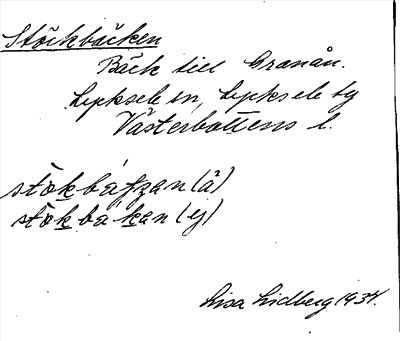 Stöckbäcken
Bäck till Granån.
Lycksele sn, Lycksele tg
Västerbottens l.
stökbäƶan (ä)
stökbäkan (ej)
Lisa Lidberg 1934.